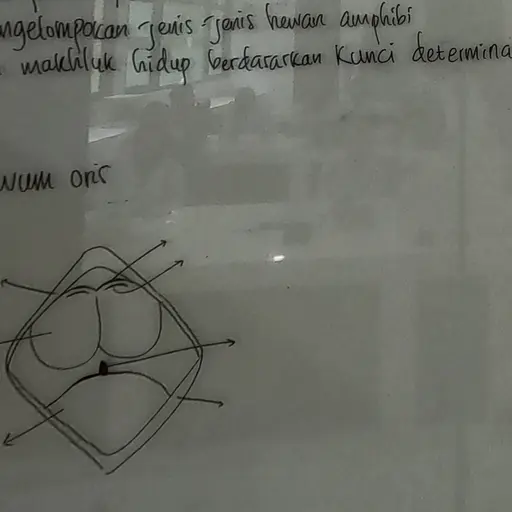 ngelompokan jenis-jenis hewan amphibi
makhluk hidup berdasarkan kunci determina
vum oris